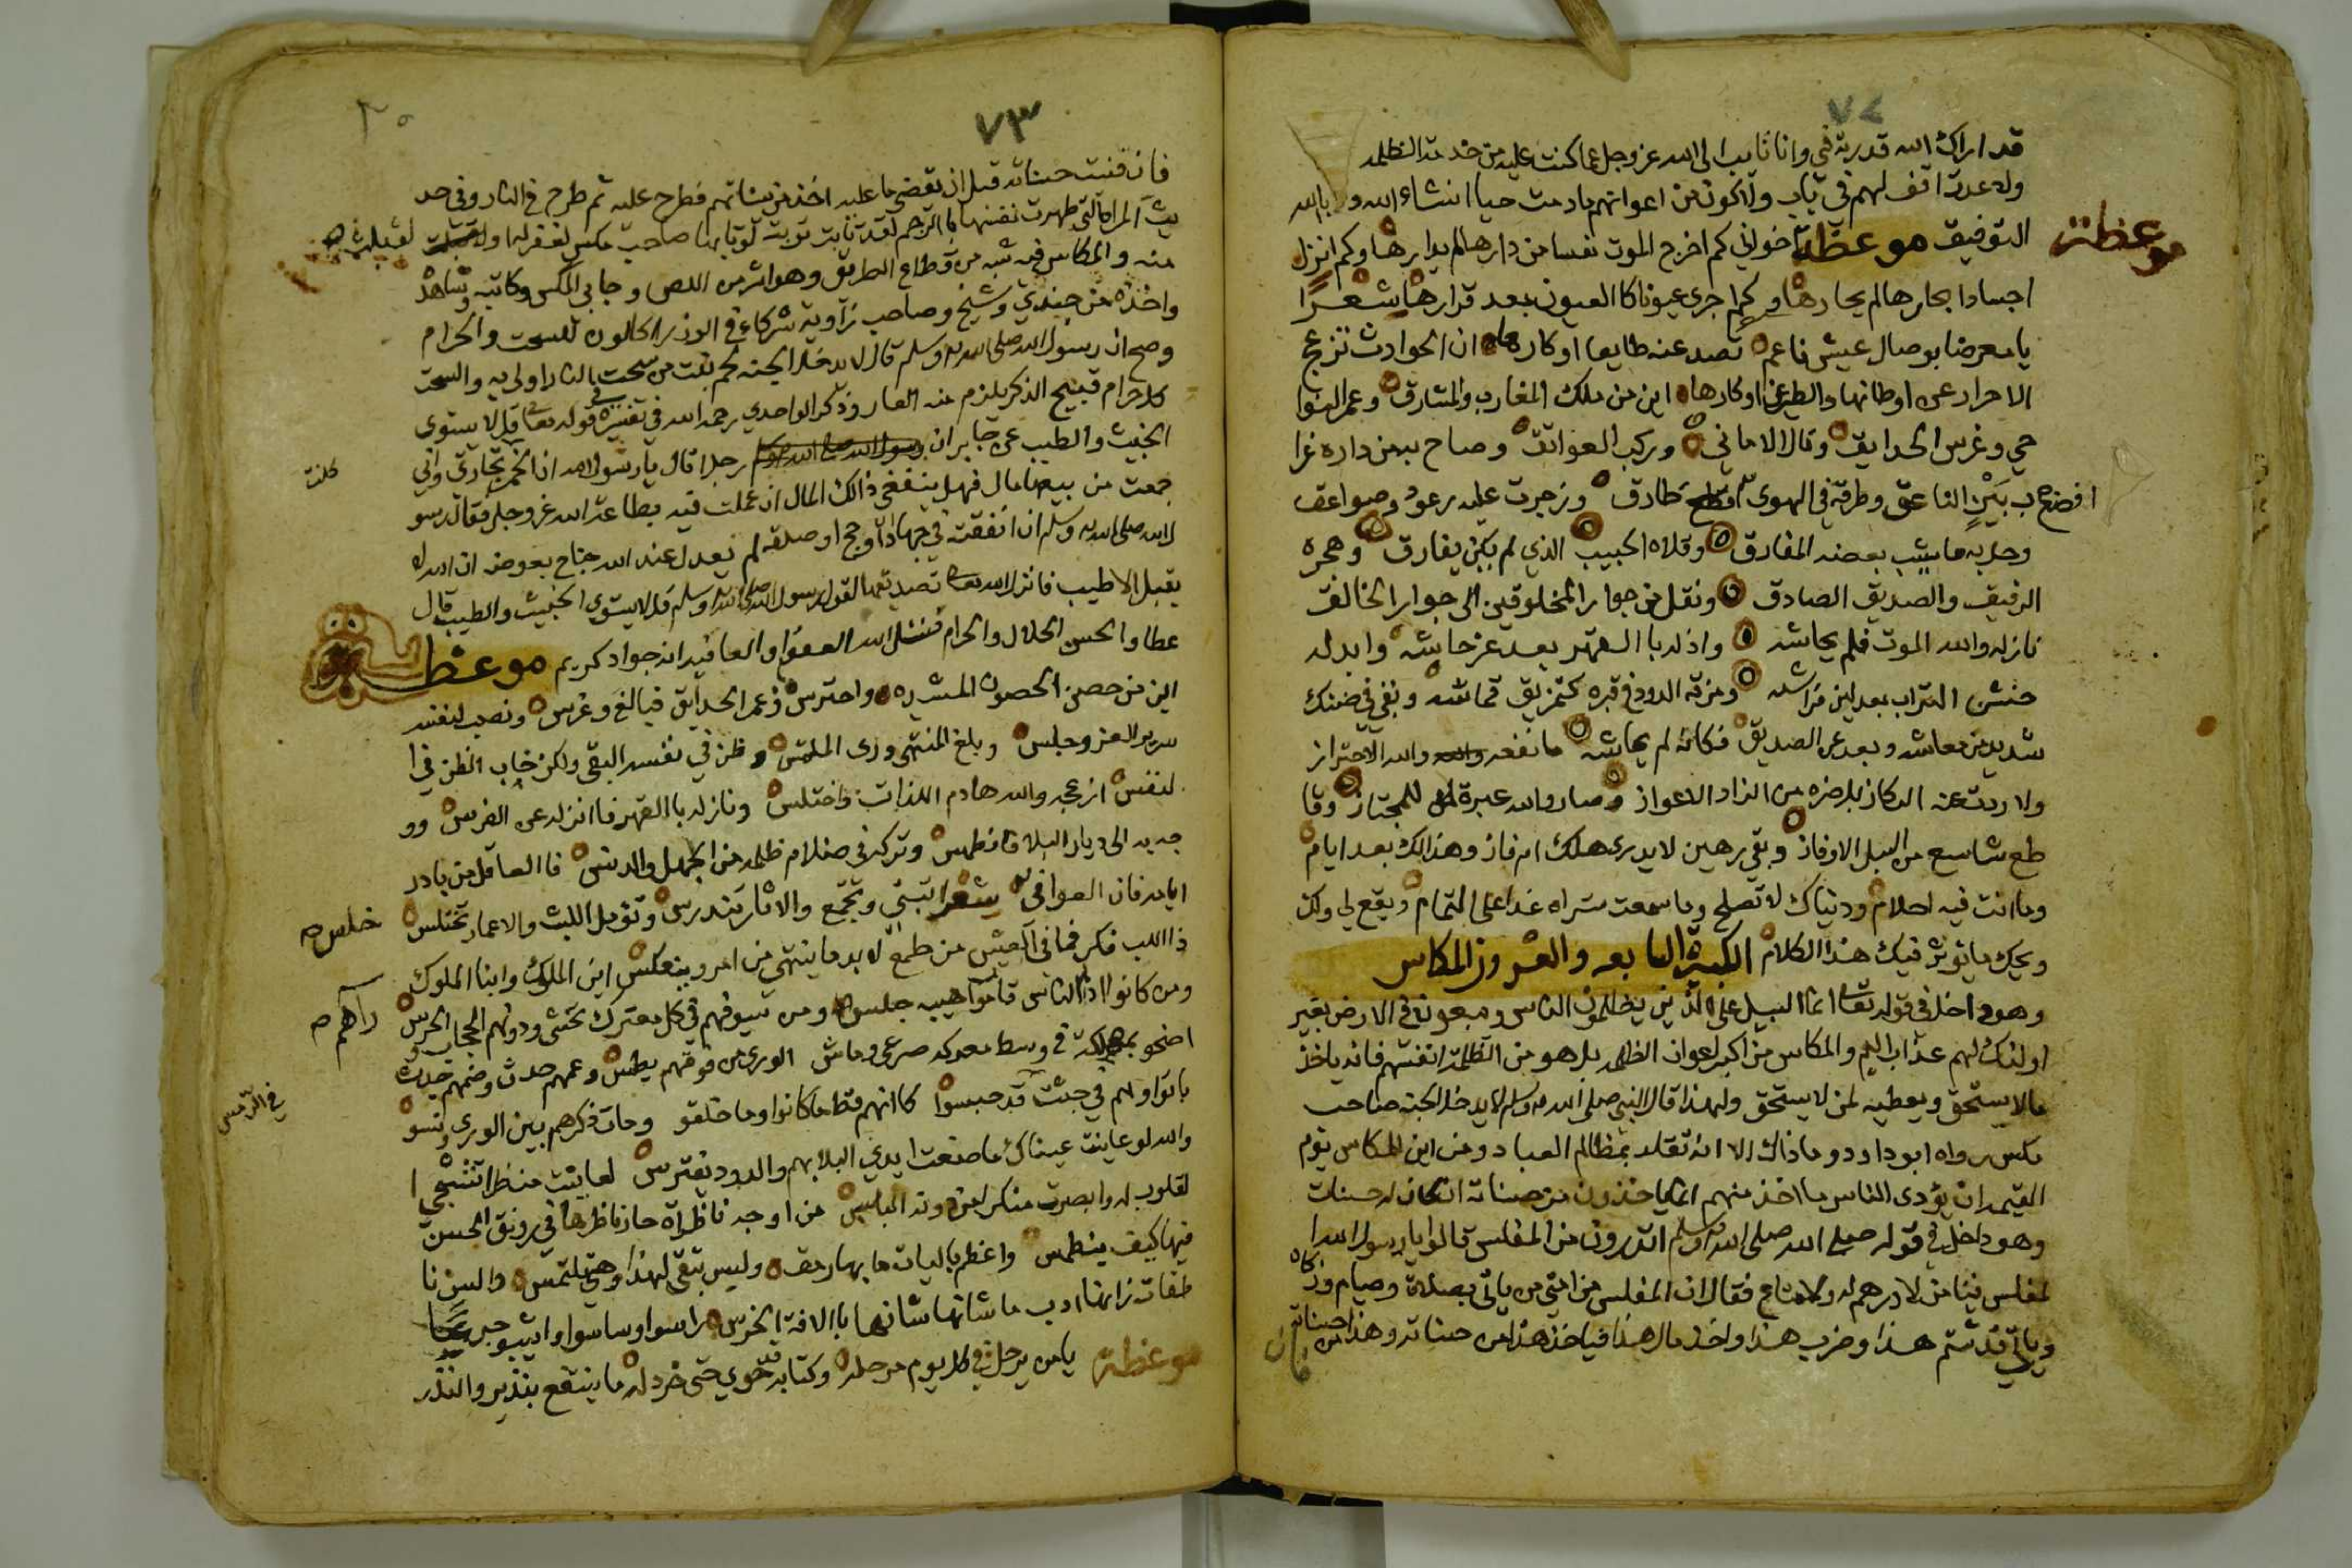 ٧٢
قد اراك الله قدرته في وانا تايب الى الله عز وجل عما كنت عليه من خدمة الظلمه
ولا عدت اقف لهم في باب ولا اكون من اعوانهم مادمت حيا انشاء الله وبالله
التوفيق موعظة اخواني كم اخرج الموت نفسا من دارها لم يدارها وكم انزل
موعظة
اجسادا بجارها لم يجارها وكم اجرى عيونا كالعيون بعد قرارها شعرًا
يا معرضا بوصال عيش ناعم تصد عنه طايعا او كارها ان الحوادث تزعج
الاحرار عن اوطانها والطير عن اوكارها اين من ملك المغارب والمشارق وعمر النوا
حي وغرس الحدايق ونال الاماني وركب العواتق وصاح به من داره غرا
ب بين الناعق وطرقه في الهوى طارق وزجرت عليه رعود وصواعق
وحل به ما شيب بعضه المفارق وقلاه الحبيب الذي لم يكن يفارق وهجره
الرفيق والصديق الصادق ونقل من جوار المخلوقين الى جوار الخالق
نازله والله الموت فلم يحاشه واذله بالقهر بعد عز جاشه وابدله
خشن التراب بعد لين فراشه ومزقه الدود في قبره كتمزيق قماشه وبقي في ضنك
شديد من معاشه وبعد عن الصديق فكانه لم يماشه ما نفعه والله الاحتراز
ولا ردت عنه الركاز بل ضره من الزاد الاعواز وصار والله عبرة للمجتاز وقا
طع شاسع من السبل الاوفاز وبقي رهين لا يدرى هلك ام فاز وهذا لك بعد ايام
وما انت فيه احلام ودنياك لا تصلح وما سمعت ستراه غدا على التمام ويقع لي ولك
ويحك ما يوثر فيك هذا الكلام الكبيرة السابعه والعشرون المكاس
وهو داخل في قوله تعا انما السبيل على الذين يظلمون الناس ويبغون في الارض بغير
اولئك لهم عذاب اليم والمكاس من اكبر اعوان الظلمه بل هو من الظلمة انفسهم فانه ياخذ
مالا يستحق ويعطيه لمن لا يستحق ولهذا قال النبي صلى الله عليه وسلم لا يدخل الجنة صاحب
مكس رواه ابو داود وما ذاك الا انه تقلد بمظالم العباد ومن اين للمكاس يوم
القيمه ان يؤدى الناس ما اخذ منهم انما ياخذون من حسناته ان كان له حسنات
وهو داخل في قوله صلى الله عليه وسلم اتدرون من المفلس قالوا يا رسول الله ا
لمفلس فينا من لا درهم له ولا متاع فقال ان المفلس من امتي من ياتي بصلاة وصيام وزكاه
وياتي قد شتم هذا وضرب هذا واخذ مال هذا فياخذ هذا من حسناته وهذا من حسناته
فان
٧٣
فان فنيت حسناته قبل ان يقضي ما عليه اخذ من سيئاتهم فطرح عليه ثم طرح في النار وفي حد
يث المراة التي طهرت نفسها بالرجم لقد تابت توبة لو تابها صاحب مكس لغفر له او لقبلت
منه والمكاس فيه شبه من قطاع الطريق وهو اشر من اللص وجابي المكس وكاتبه وشاهد
واخذه من جندي وشيخ وصاحب زاوية شركاء في الوزر اكالون للسحت والحرام
وصح ان رسول الله صلى الله عليه وسلم قال لا يدخل الجنة لحم نبت من سحت النار اولى به والسحت
كل حرام قبيح الذكر يلزم منه العار وذكر الواحدي رحمه الله في تفسير قوله تعا قل لا يستوى
الخبيث والطيب عن جابر ان رجلا قال يا رسول الله ان الخمر تجارتي واني
كانت
جمعت من بيعها مال فهل ينفعني ذالك المال ان عملت فيه بطاعة الله عز وجل فقال رسو
ل الله صلى الله عليه وسلم ان انفقته في جهاد او حج او صدقه لم يعدل عند الله جناح بعوضه ان الله لا
يقبل الا طيب فانزل الله تعا تصديقا لقول رسول الله صلى الله عليه وسلم قل لا يستوي الخبيث والطيب قال
عطا والحسن الحلال والحرام فنسئل الله العفو والعافيه انه جواد كريم موعظه
اين من حصن الحصون المشيده واحترس وعمر الحدايق فبالغ وغرس ونصب لنفسه
سرير العز وجلس وبلغ المنتهى وراى الملتمس وظن في نفسه البقى ولكن خاب الظن في ا
لنفس ازعجه والله هادم اللذات واختلس ونازله بالقهر فانزله عن الفرس وو
جه به الى ديار البلا فانطمس وتركه في ظلام ظلمه من الجهل والدنس فا العاقل من بادر
ايامه فان العوافي شعرا تبني وتجمع والاثار تندرس وتؤمل اللبث والاعمار تختلس
خلس صح
ذا اللب فكر فما في العيش من طمع لا بد ما ينتهي من امر وينعكس اين الملوك وابنا الملوك
ومن كانوا اذا الناس قاموا هيبه جلس ومن سيوفهم في كل معترك تخشى ودونهم الحجاب الحرس
راهم صح
اضحو بمهلكة في وسط معركه صرعى وماشى الورى من فوقهم يطس وعمهم حدث وضمهم جدث
باتوا وهم في جثث قد حبسوا كانهم قط ما كانوا وما خلقو ومات ذكرهم بين الورى ونسو
في الرمس
والله لو عاينت عيناك ما صنعت ايدي البلا بهم والدود يفترس لعاينت منظرا تشجي ا
لقلوب له وابصرت منكرا من دونه البلس من اوجه ناظرة حار ناظرها في رونق الحسن
فيها كيف ينطمس واعظم باليات ما بها رمق وليس تبقى لهذا وهي تلتمس والسن نا
طقات زانها ادب ما شانها شانها بالافة الخرس
موعظة يا من يرحل في كل يوم مرحله وكتابه قد حوي حتى خردله ما ينتفع بنذير والنذر